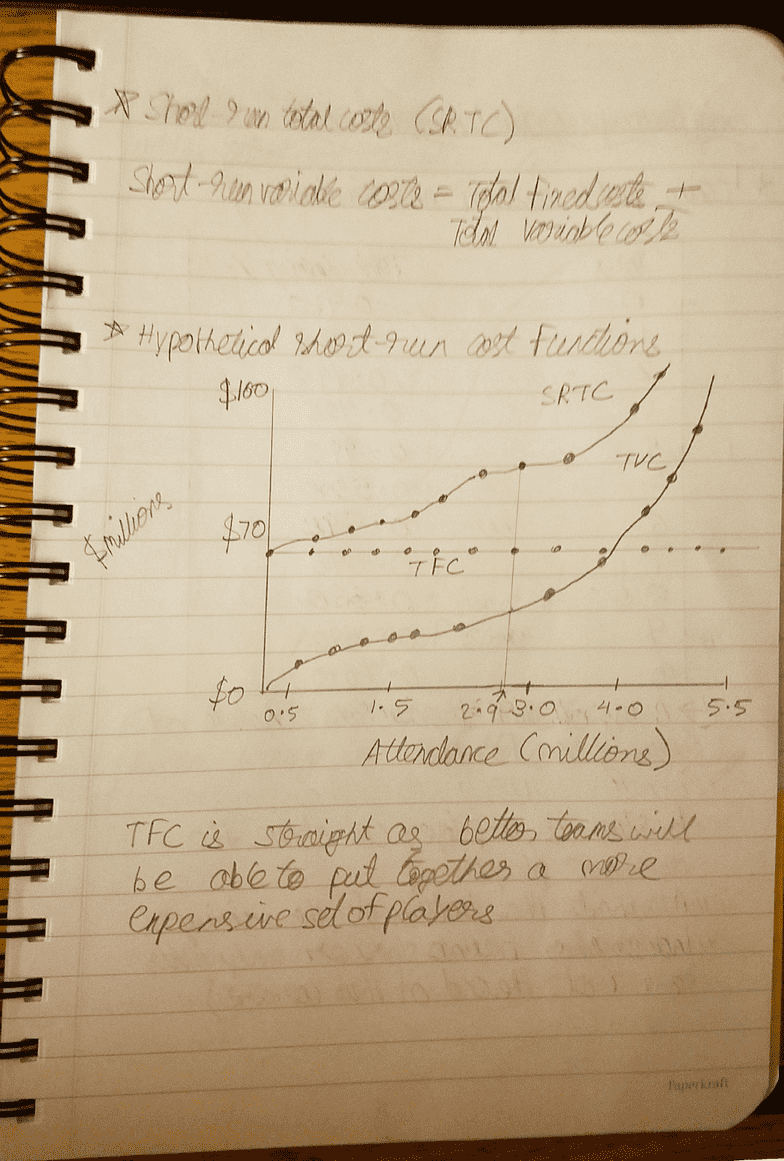 * Short-run total costs (SRTC)
Short-run variable costs = Total fixed costs +
Total variable costs
* Hypothetical short-run cost functions
$100
SRTC
TVC
$millions
$70
TFC
$0
0.5 1.5 2.9 3.0 4.0 5.5
Attendance (millions)
TFC is straight as better teams will
be able to put together a more
expensive set of players
Paperkraft